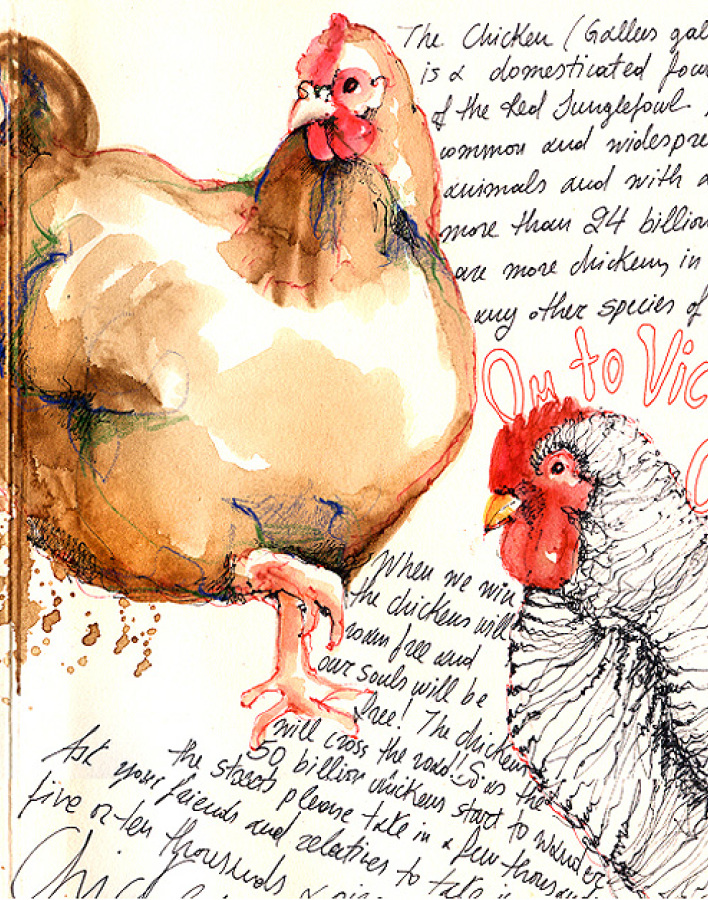 The Chicken (Gallus gal
is a domesticated fow
of the Red Junglefowl
common and widespre
animals and with a
more than 24 billion
are more chickens in
any other species of
On to Vic
When we win
the chickens will
roam free and
our souls will be
free! The chickens
will cross the road! So as the
50 billion chickens start to wander
the streets please take in a few thousand
Ask your friends and relatives to take in
five or ten thousands